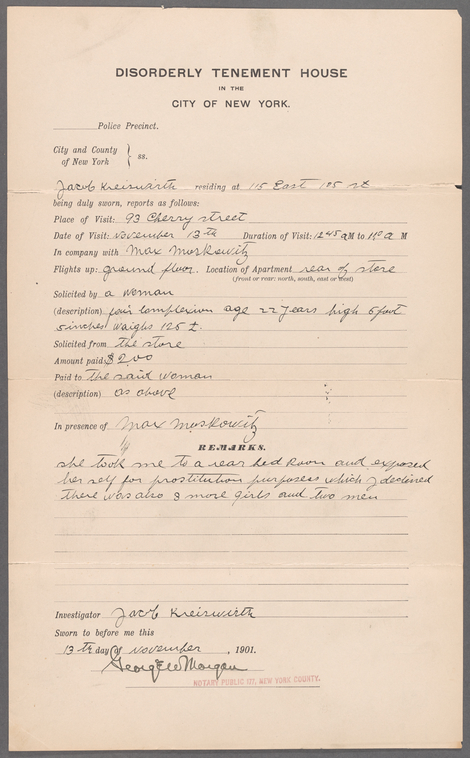 DISORDERLY TENEMENT HOUSE
IN THE
CITY OF NEW YORK.
Police Precinct.
City and County
of New York } ss.
Jacob Kreiswirth residing at 115 East 105 st
being duly sworn, reports as follows:
Place of Visit: 93 Cherry street
Date of Visit: November 13th Duration of Visit: 12 45 a M to 1 M
In company with Max Moskowitz
Flights up: ground floor. Location of Apartment rear of store
(front or rear: north, south, east or west)
Solicited by a woman
(description) fair complexion age 22 years high 5 foot
5 inches waighs 125 t.
Solicited from the store
Amount paid: $2.00
Paid to the said woman
(description) as above
In presence of Max Moskowitz
REMARKS.
she took me to a rear bed room and exposed
her self for prostitution purposess which I declined
there was also 3 more girls and two men
Investigator Jacob Kreiswirth
Sworn to before me this
13th day of November, 1901.
George W Morgan
NOTARY PUBLIC 177, NEW YORK COUNTY.